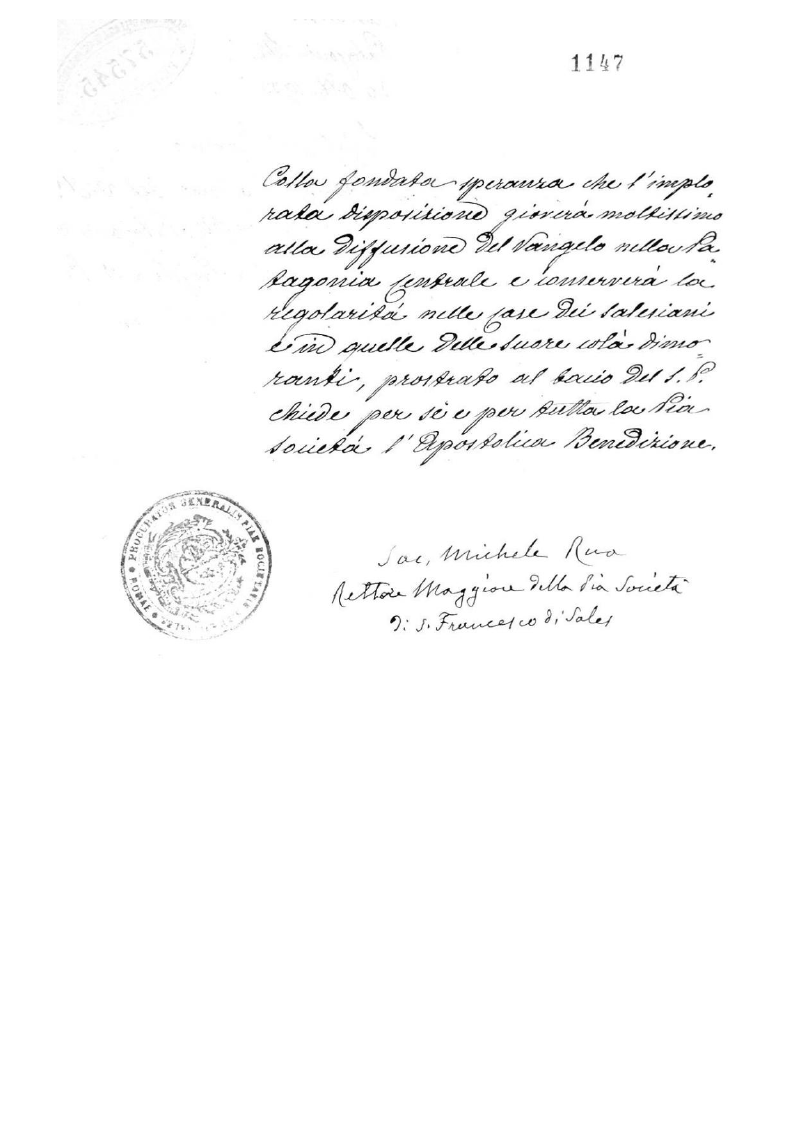 1147
57545
Colla fondata speranza che l'implo-
rata disposizione gioverà moltissimo
alla diffusione del Vangelo nella Pa-
tagonia Centrale e conserverà la
regolarità nelle case dei Salesiani
e in quelle delle Suore colà dimo-
ranti, prostrato al bacio del S. P.
chiede per sè e per tutta la Pia
Società l'Apostolica Benedizione.
PROCURATOR GENERALIS PIAE SOCIETATIS ROMAE
Sac. Michele Rua
Rettore Maggiore della Pia Società
di S. Francesco di Sales